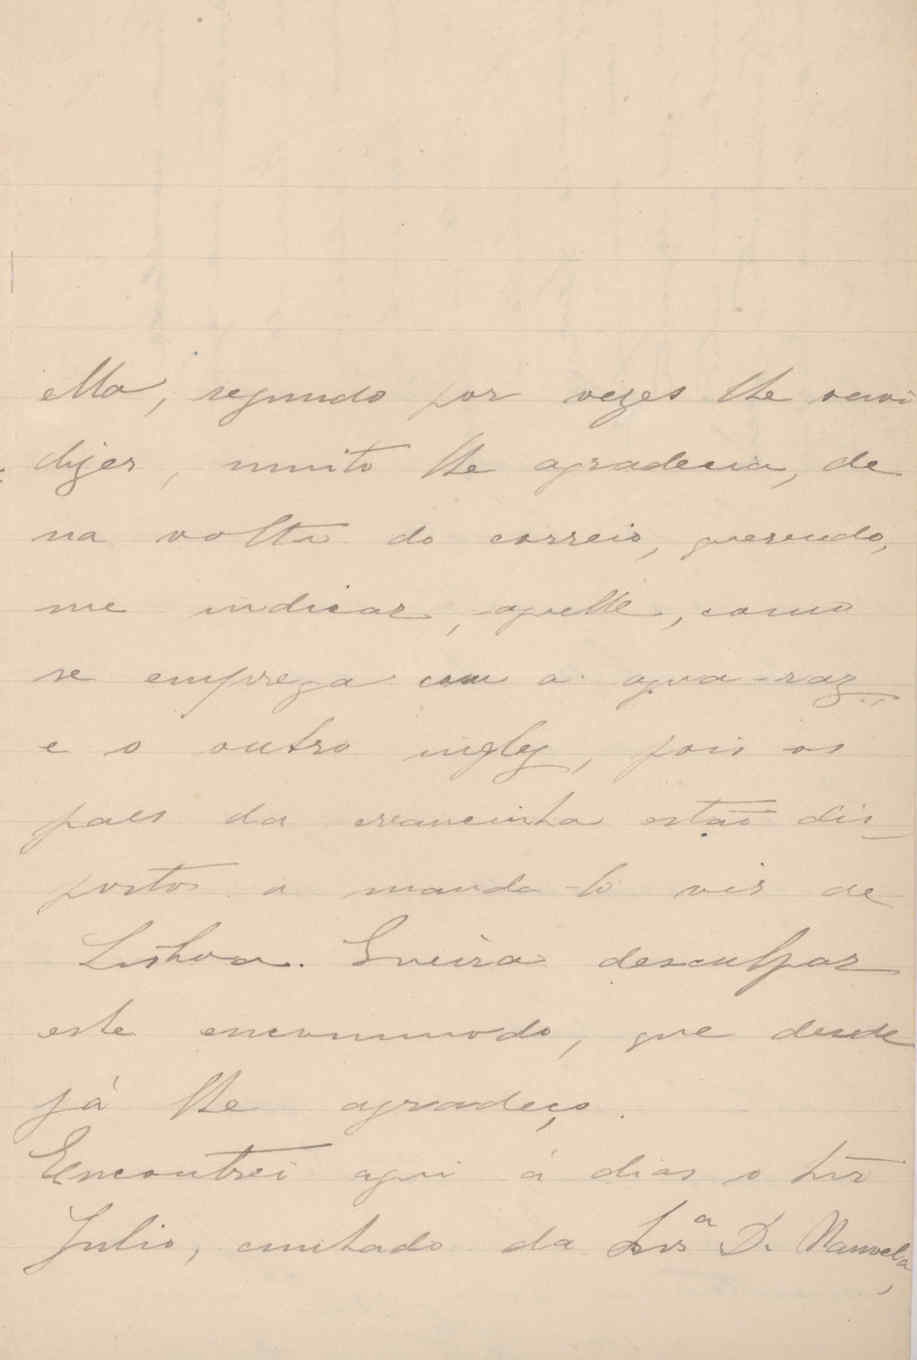 ella, segundo por vezes lhe ouvi
dizer, muito lhe agradecia, de
na volta do correio, querendo,
me indicar, aquelle, como
se emprega com a agua-raz,
e o outro inglez, pois os
paes da creancinha estão dis-
postos a manda-lo vir de
Lisboa. Queira desculpar
este encommodo, que desde
já lhe agradeço.
Encontrei aqui á dias o Snr
Julio, cunhado da Snrª D. Manuela,